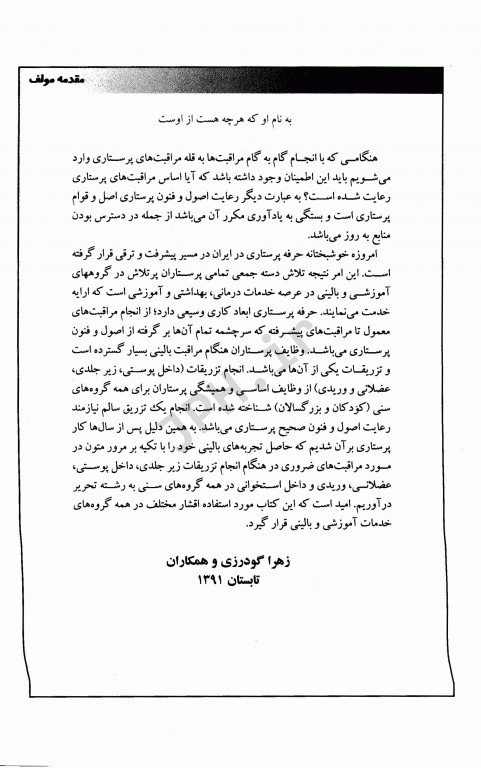 مقدمه مولف
به نام او که هرچه هست از اوست
هنگامـی که با انجـام گام به گام مراقبت‌ها به قله مراقبت‌های پرستاری وارد
می‌شـویم باید این اطمینان وجود داشته باشد که آیا اساس مراقبت‌های پرستاری
رعایت شـده اسـت؟ به عبارت دیگر رعایت اصول و فنون پرستاری اصل و قوام
پرستاری است و بستگی به یادآوری مکرر آن می‌باشد از جمله در دسترس بودن
منابع به روز می‌باشد.
امروزه خوشبختانه حرفه پرستاری در ایران در مسیر پیشرفت و ترقی قرار گرفته
اسـت. این امر نتیجه تلاش دسته جمعی تمامی پرستاران پرتلاش در گروههای
آموزشـی و بالینی در عرصه خدمات درمانی، بهداشتی و آموزشی است که ارایه
خدمت می‌نمایند. حرفه پرسـتاری ابعاد کاری وسیعی دارد؛ از انجام مراقبت‌های
معمول تا مراقبت‌های پیشـرفته که سرچشمه تمام آن‌ها بر گرفته از اصول و فنون
پرسـتاری می‌باشـد. وظایف پرستاران هنگام مراقبت بالینی بسیار گسترده است
و تزریقـات یکی از آن‌ها می‌باشـد. انجام تزریقات (داخل پوسـتی، زیر جلدی،
عضلانی و وریدی) از وظایف اساسـی و همیشگی پرستاران برای همه گروه‌های
سنی (کودکان و بزرگسالان) شـناخته شده است. انجام یک تزریق سالم نیازمند
رعایت اصول و فنون صحیح پرسـتاری می‌باشد. به همین دلیل پس از سال‌ها کار
پرستاری برآن شدیم که حاصل تجربه‌های بالینی خود را با تکیه بر مرور متون در
مـورد مراقبت‌های ضروری در هنگام انجام تزریقات زیر جلدی، داخل پوسـتی،
عضلانـی، وریدی و داخل اسـتخوانی در همه گروه‌های سـنی به رشـته تحریر
درآوریم. امید است که این کتاب مورد استفاده اقشار مختلف در همه گروه‌های
خدمات آموزشی و بالینی قرار گیرد.
زهرا گودرزی و همکاران
تابستان ۱۳۹۱